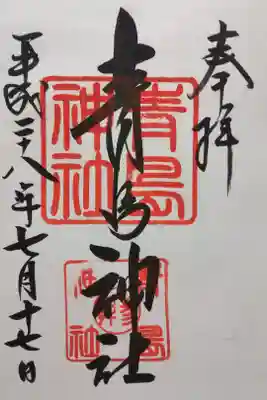 奉拝
青島神社
青島神社
平成二十八年七月十七日